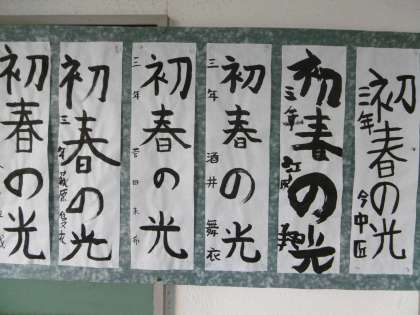 初春の光
三年 今中匠
初春の光
三年
初春の光
三年 酒井舞衣
初春の光
三年
初春の光
三年 萩原
初春の光